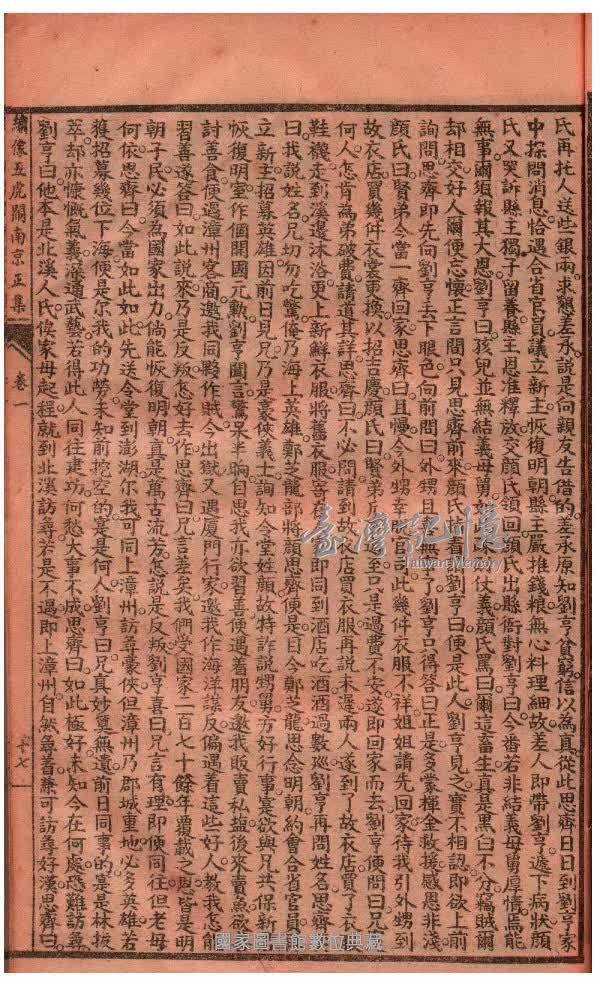 氏再托人送些銀兩求懇差承說是向親友告借的差承原知劉亨貧窮信以為真從此思齊日日到劉亨家
中探問消息恰遇合省官員議立新主恢復明朝縣主嚴推錢粮無心料理細故差人即帶劉亨遞下病狀顏
氏又哭訴縣主獨子留養縣主恩准釋放交顏氏領回顏氏出縣衙對劉亨曰今番若非結義母舅厚情焉能
無事爾須報其大恩劉亨曰孩兒並無結義母舅
仗義顏氏罵曰爾這畜生真是黑白不分竊賊爾
却相交好人爾便忘懷正言間只見思齊前來顏氏指着
劉亨曰便是此人劉亨見之實不相認即欲上前
詢問思齊即先向劉亨丟下眼色向前問曰外甥且
無事了劉亨只得答曰正是多蒙揮金救援感恩非淺
顏氏曰賢弟今當一齊回家思齊曰且慢今外甥幸
官司此幾件衣服不祥姐姐請先回家待我引外甥到
故衣店買幾件衣裳更換以招吉慶顏氏曰賢弟
至只是過費不安遂即回家而去劉亨便問曰兄
何人怎肯為弟破費請道其詳思齊曰不必問請到故衣店買衣服再說未遲兩人遂到了故衣店買了衣衫
鞋襪走到溪邊沐浴更上新鮮衣服將舊衣服寄在
即同到酒店吃酒酒過數巡劉亨再問姓名思齊
曰我說姓名兄切勿吃驚俺乃海上英雄鄭芝龍部將顏思齊便是目今鄭芝龍思念明朝約會合省官員
立新主招募英雄因前日見兄乃是豪俠義士詢知令堂姓顏故特詐說甥舅方好行事寔欲與兄共保新
恢復明室作個開國元勳劉亨聞言驚呆半晌自思我亦欲習善便遇着朋友邀我販賣私盐後來賣魚欲
討善食便遇漳州客商邀我同夥作賊今出獄又遇厦門行家邀我作海洋謀反偏遇着這些好人教我怎能
習善遂答曰如此說來乃是反叛怎好去作思齊曰兄言差矣我們受國家二百七十餘年覆載之恩皆是明
朝子民必須為國家出力倘能恢復明朝真是萬古流芳怎說是反叛劉亨喜曰兄言有理即便同往但老母
何依思齊曰今當如此如此先送令堂到澎湖尔我可同上漳州訪尋豪俠但漳州乃郡城重地必多英雄若
獲招募幾位下海便是尔我的功勞未知前挖空的寔是何人劉亨曰兄真妙筭無遺前日同事的寔是林拔
萃却亦慷慨氣義深通武藝若得此人同往建功何愁大事不成思齊曰如此極好未知今在何處恐難訪尋
劉亨曰他本是北溪人氏俟家母起程就到北溪訪尋若是不遇即上漳州自然尋着兼可訪尋好漢思齊曰
繡像五虎鬧南京正集
卷一
十七
臺灣記憶
TaiwanMemory
國家圖書館數位典藏